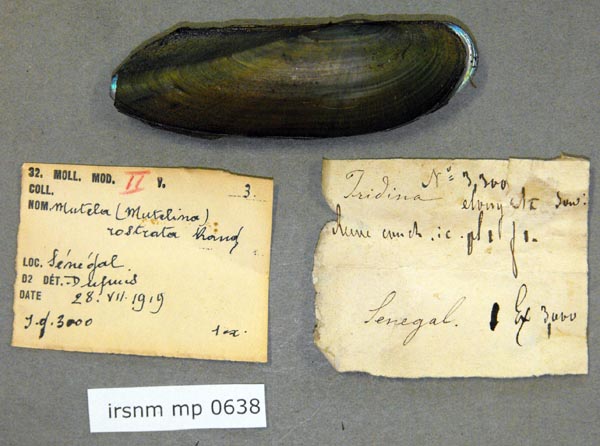 32. MOLL. MOD. II V.
COLL. 3.
NOM. Mutela (Mutelina)
rostrata Rang
LOC. Sénégal
D2 DÉT. Dupuis
DATE 28.VII.1919
I.g. 3000 1 ex.
Nº 3,300
Iridina elongata Sow:
conch. ic. pl 1 f 1.
Senegal. 1 Ex 3,000
irsnm mp 0638